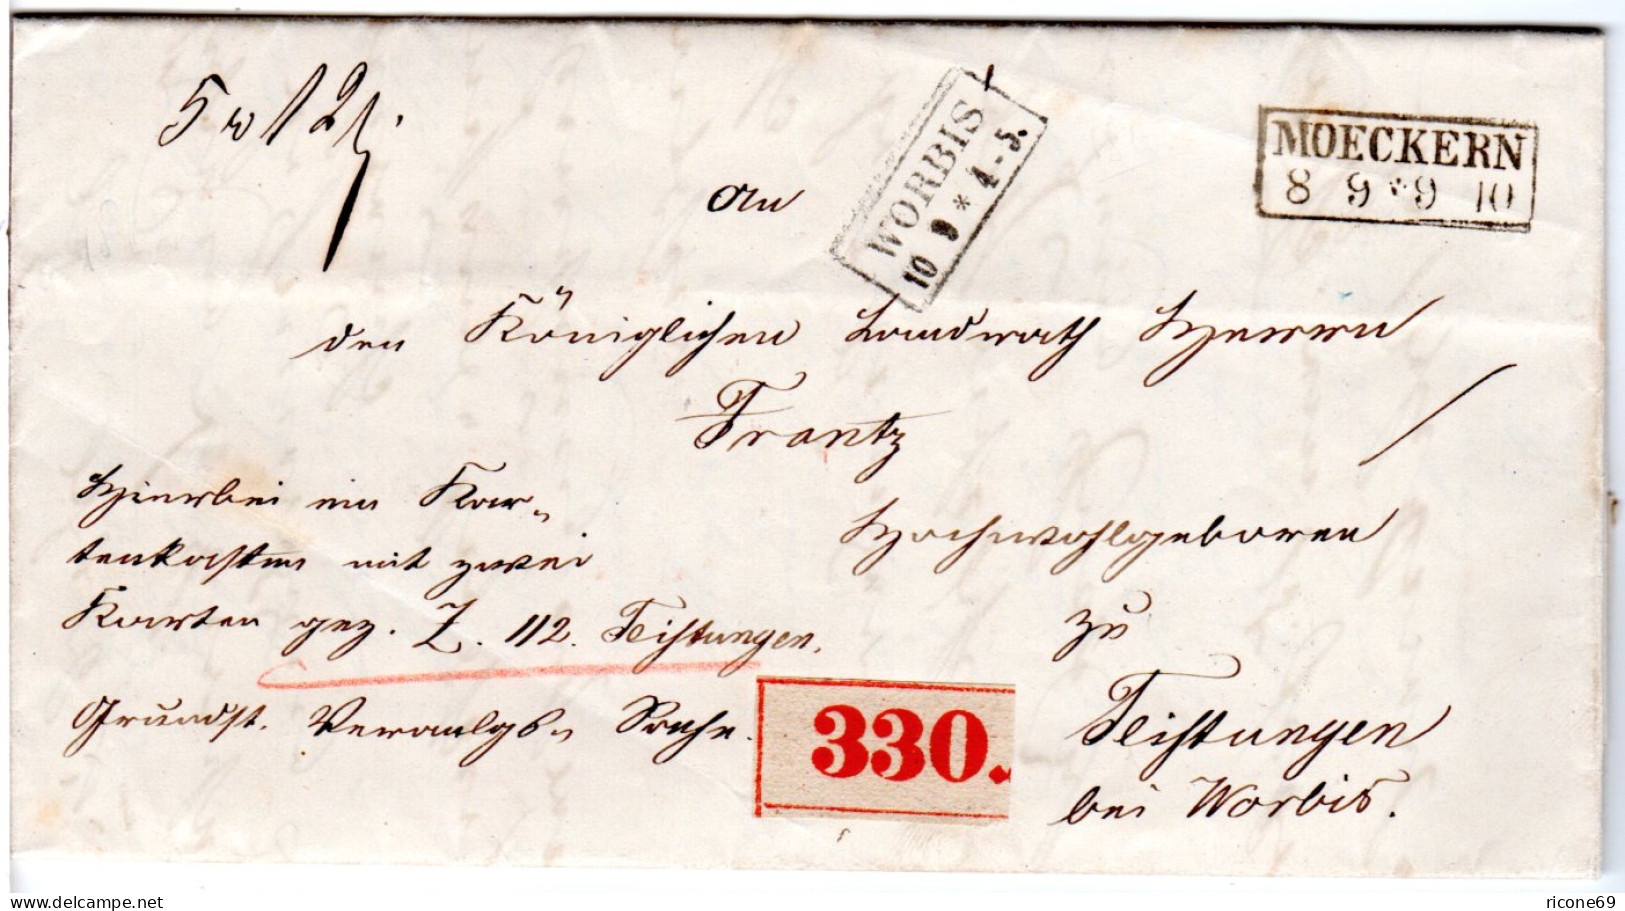 WORBIS
10 9 * 4-5.
MOECKERN
8 9 * 9 10
An
den Königlichen Landrath Herrn
Frantz
Hochwohlgeboren
zu
Teistungen
bei Worbis.
Hierbei ein Kar-
tenkasten mit zwei
Karten gez. Z. 112. Teistungen.
Grundst. Veranlgs- Sache.
330.
www.delcampe.net
ricone69